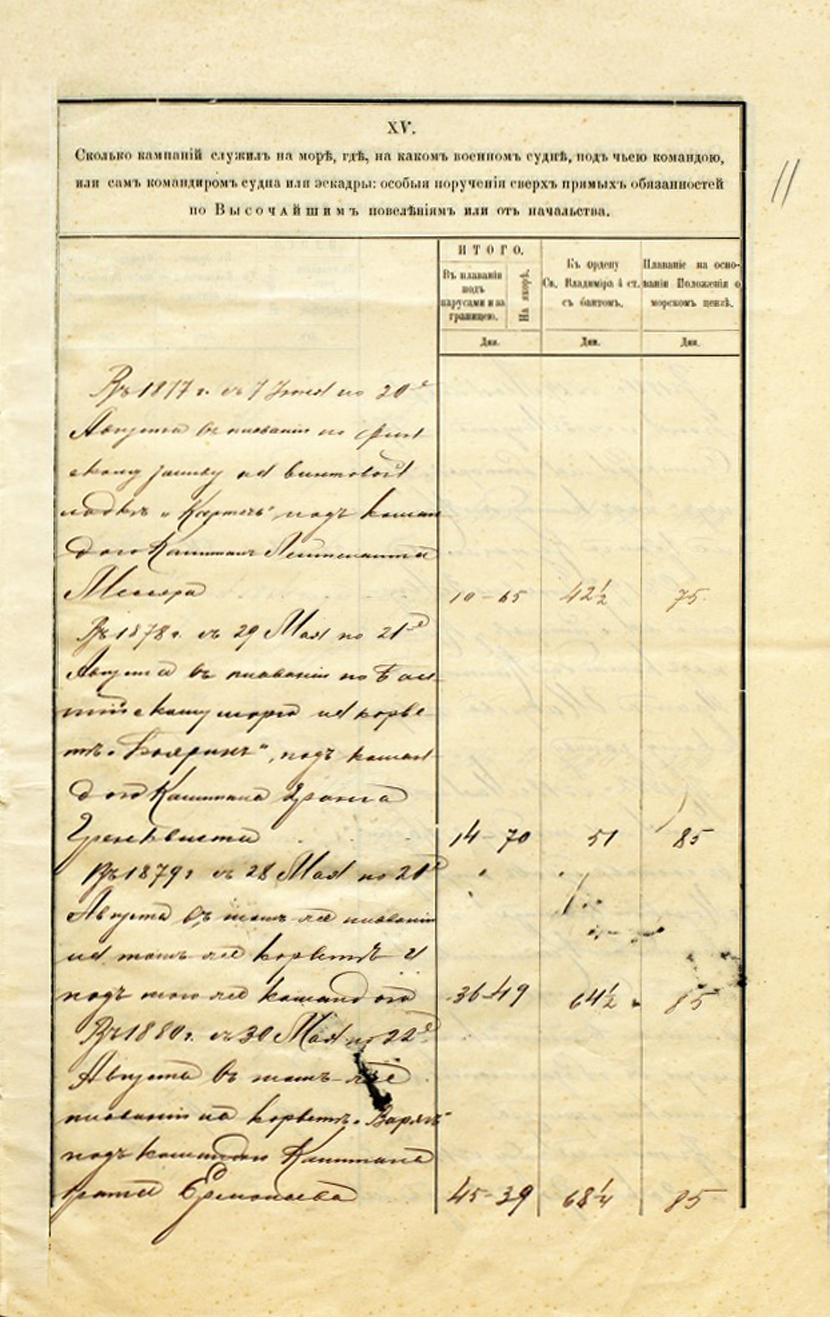 11
XV.
Сколько кампаній служилъ на морѣ, гдѣ, на какомъ военномъ суднѣ, подъ чьею командою,
или самъ командиромъ судна или эскадры: особыя порученія сверхъ прямыхъ обязанностей
по Высочайшимъ повелѣніямъ или отъ начальства.
ИТОГО.
Въ плаваніи
подъ
парусами и за
границею.
На якорѣ.
Къ ордену
Св. Владиміра 4 ст.
съ бантомъ.
Плаваніе на осно-
ваніи Положенія о
морскомъ цензѣ.
Дни.
Дни.
Дни.
Въ 1877 г. съ 7 Іюня по 20е
Августа въ плаваніи по Фин
скому заливу на винтовой
лодкѣ „Картечь" подъ коман
дою Капитанъ Лейтенанта
Мессера 10-65 42½ 75
Въ 1878 г. съ 29 Мая по 21е
Августа въ плаваніи по Бал
тійскому морю на корве
тѣ „Бояринъ", подъ коман
дою Капитана 2 ранга
14-70 51 85
Въ 1879 г съ 28 Мая по 20е
Августа въ томъ же плаваніи
на томъ же корветѣ и
подъ тою же командою 36-49 64½ 85
Въ 1880 г. съ 30 Мая по 22е
Августа въ томъ же
плаваніи на корветѣ „Варягъ"
подъ командою Капитана
45-39 68¼ 85